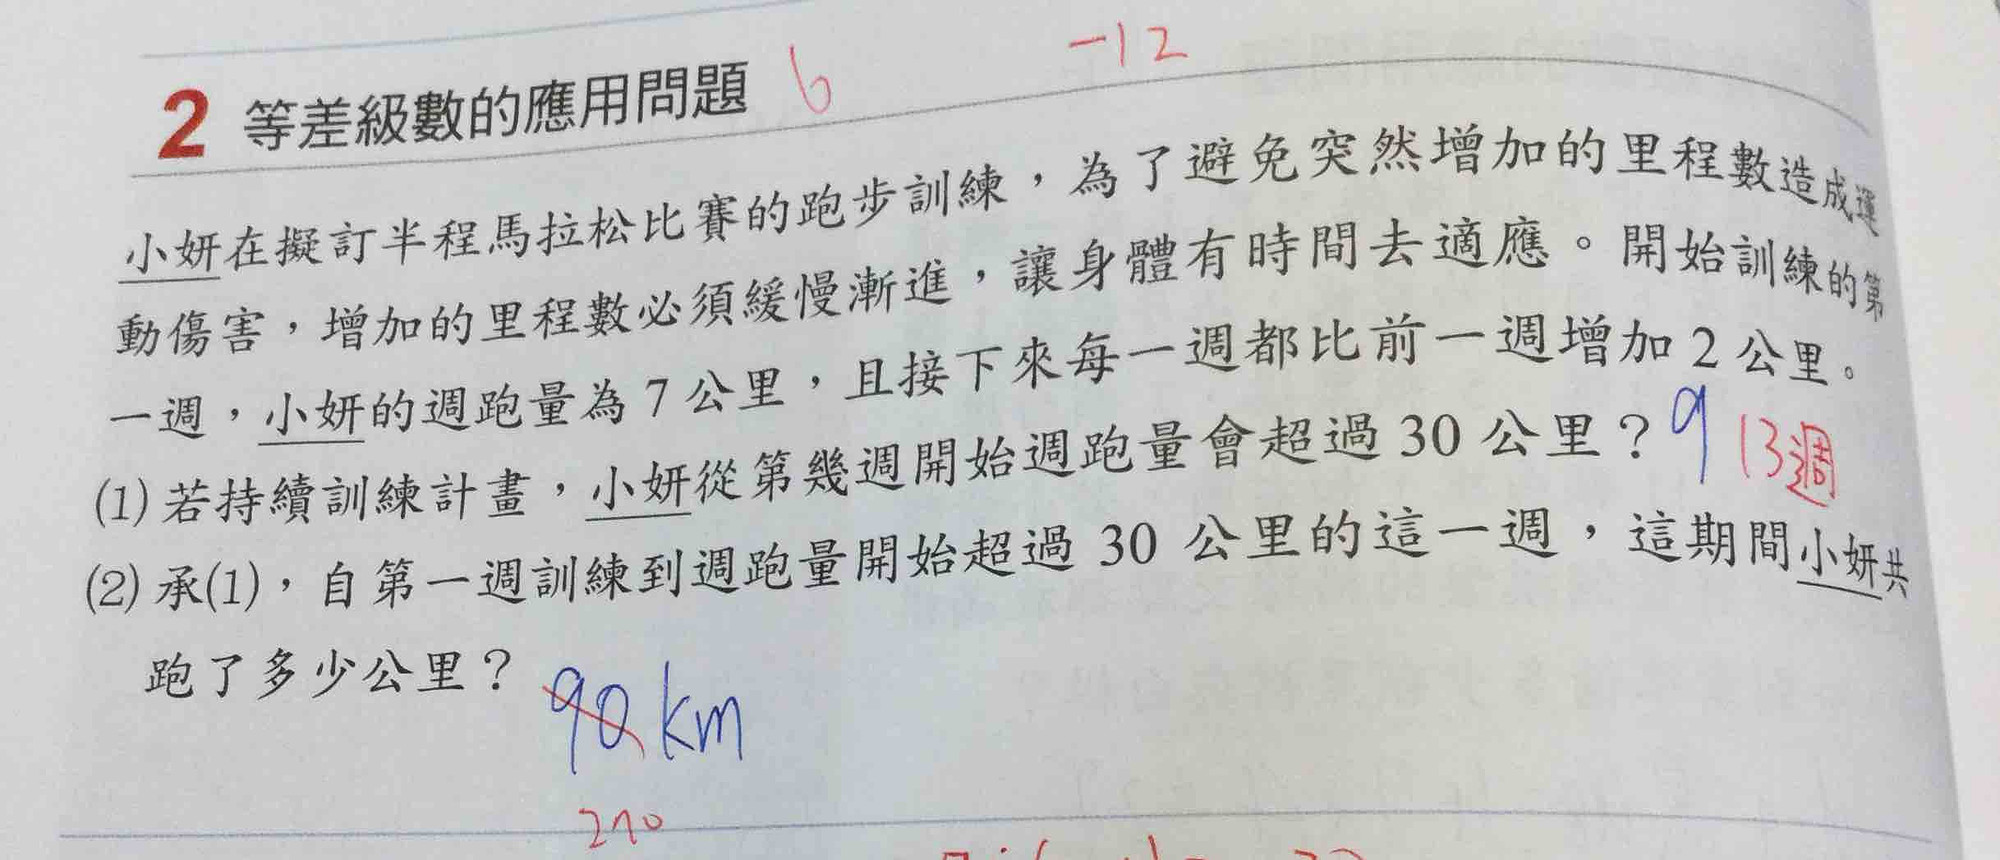 2 等差級數的應用問題 6 -12
小妍在擬訂半程馬拉松比賽的跑步訓練，為了避免突然增加的里程數造成運
動傷害，增加的里程數必須緩慢漸進，讓身體有時間去適應。開始訓練的第
一週，小妍的週跑量為 7 公里，且接下來每一週都比前一週增加 2 公里。
(1) 若持續訓練計畫，小妍從第幾週開始週跑量會超過 30 公里？9 13週
(2) 承(1)，自第一週訓練到週跑量開始超過 30 公里的這一週，這期間小妍共
跑了多少公里？ 90 km